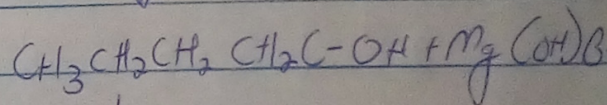 CH₃CH₂CH₂ CH₂C-OH + Mg(OH)B